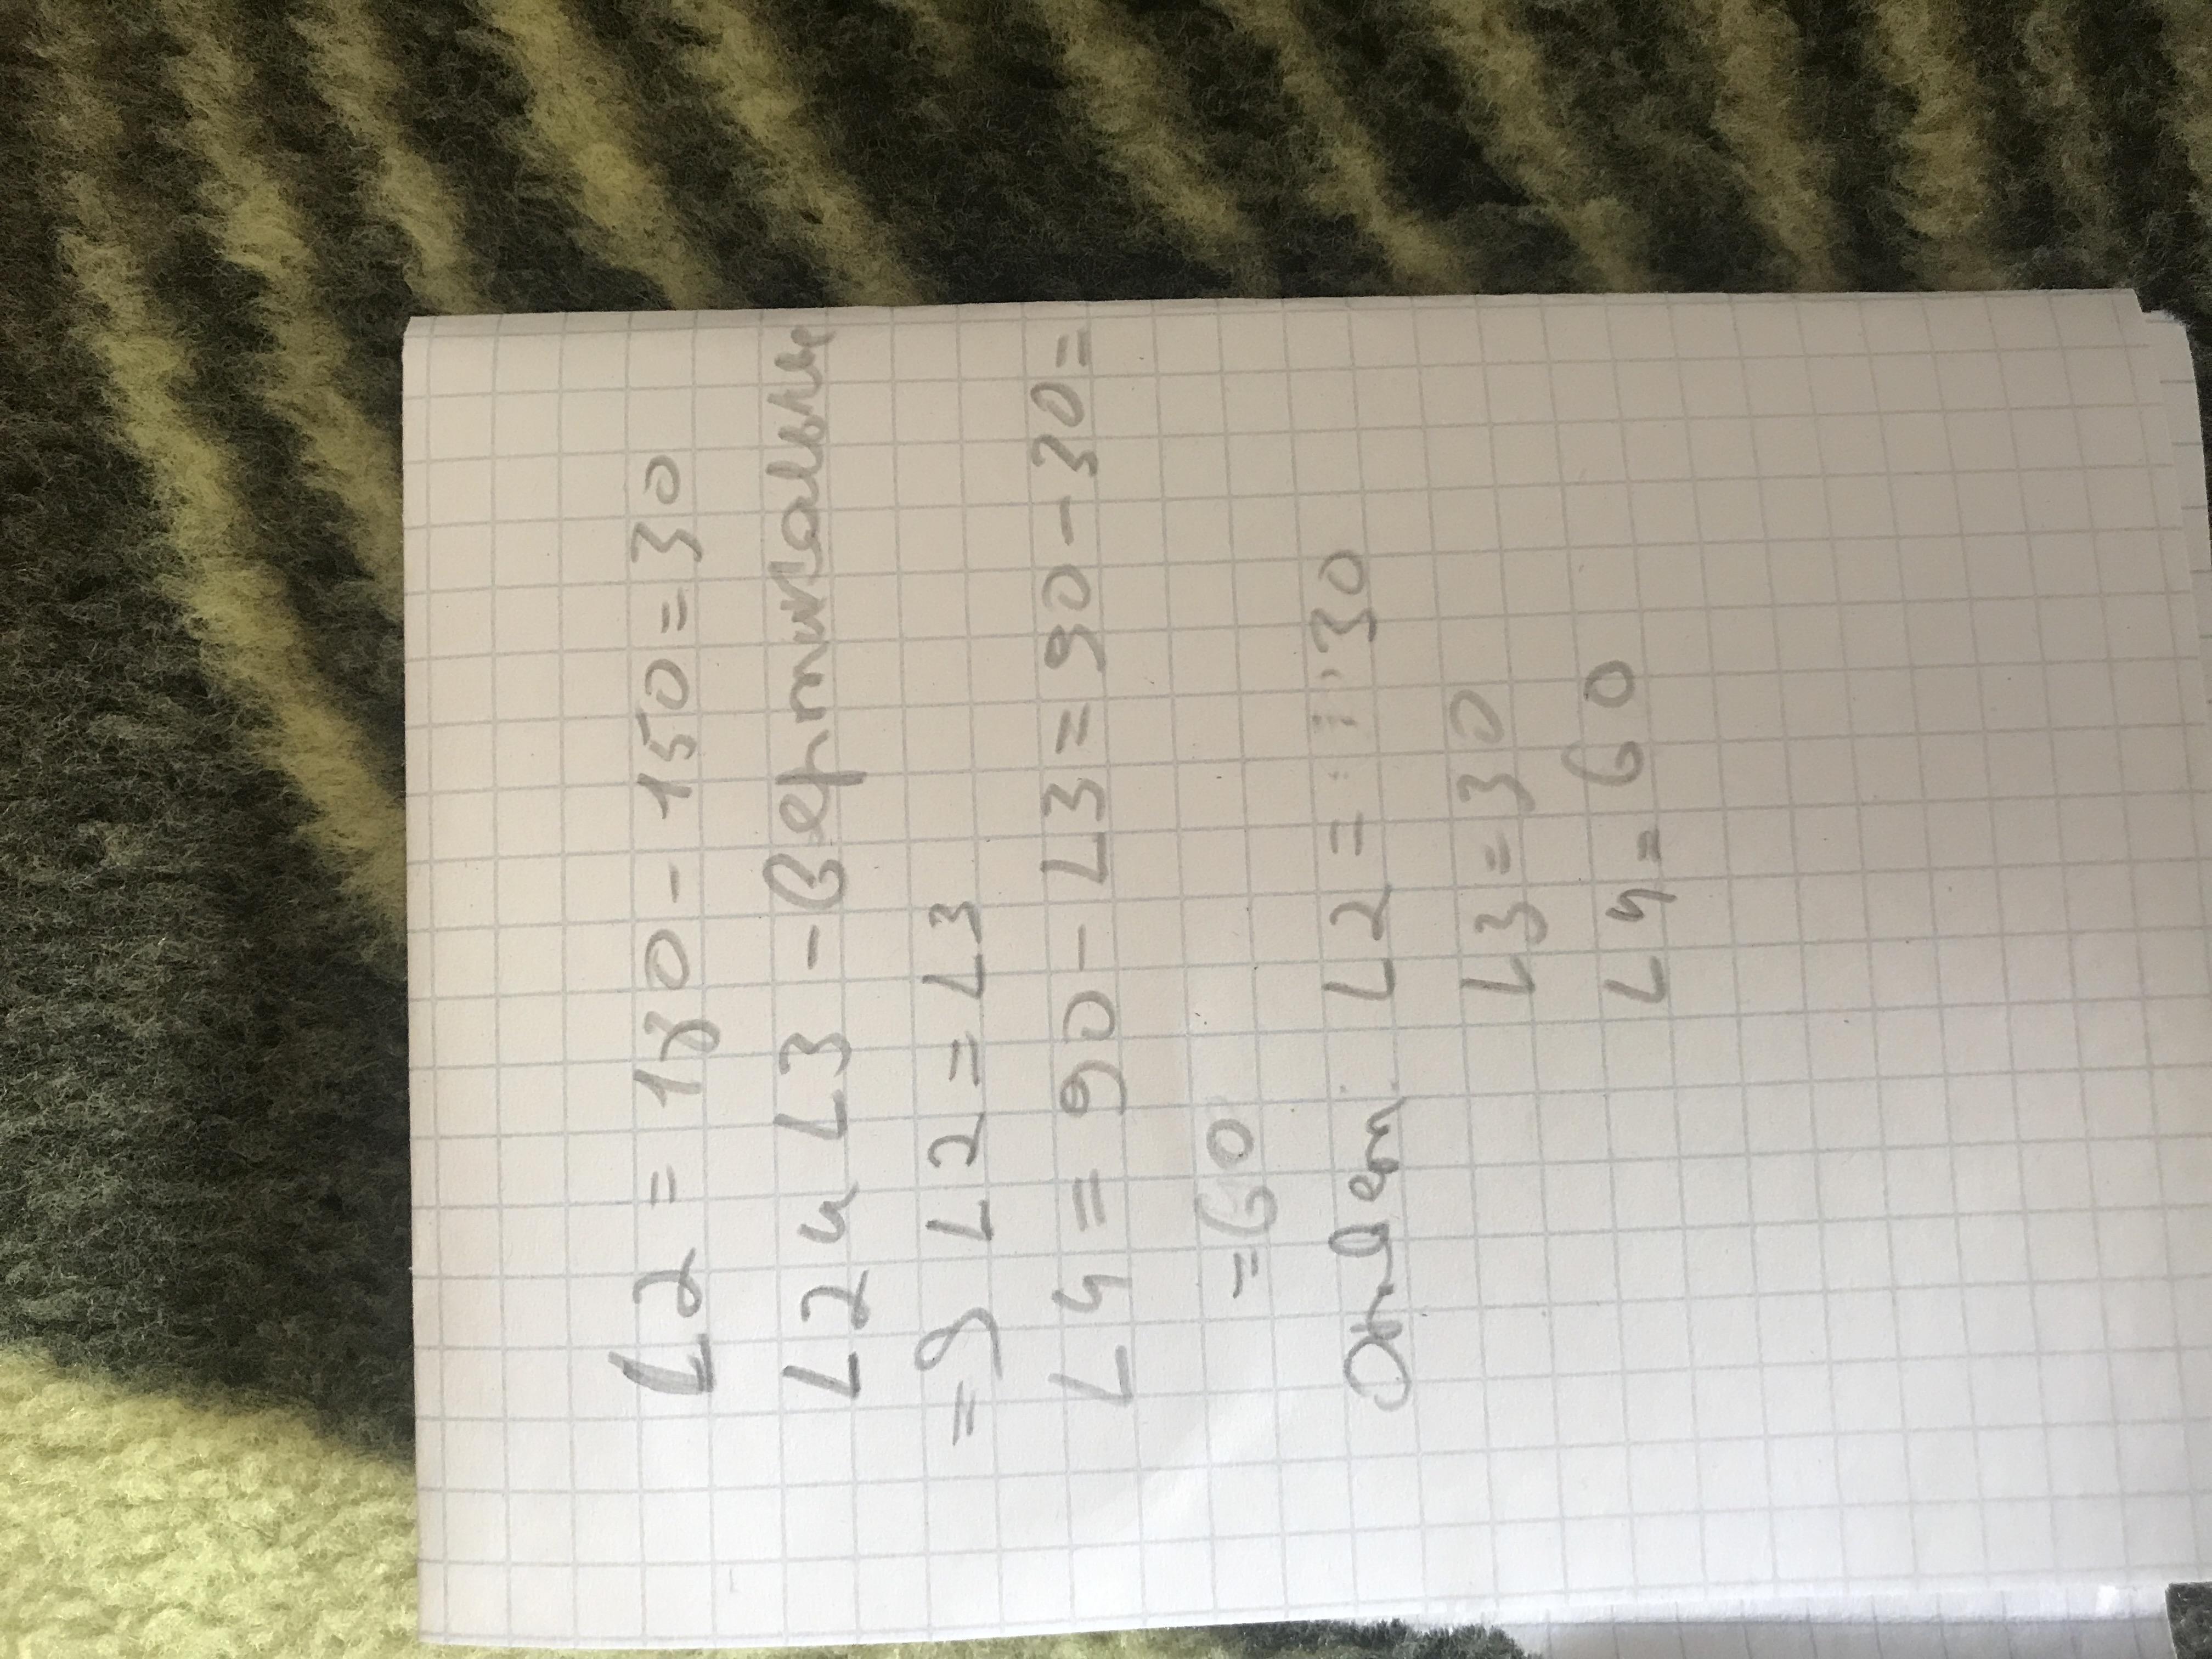 ∠2 = 180 - 150 = 30
∠2 и ∠3 - вертикальные
=> ∠2 = ∠3
∠4 = 90 - ∠3 = 90 - 30 =
= 60
Ответ: ∠2 = 30
∠3 = 30
∠4 = 60